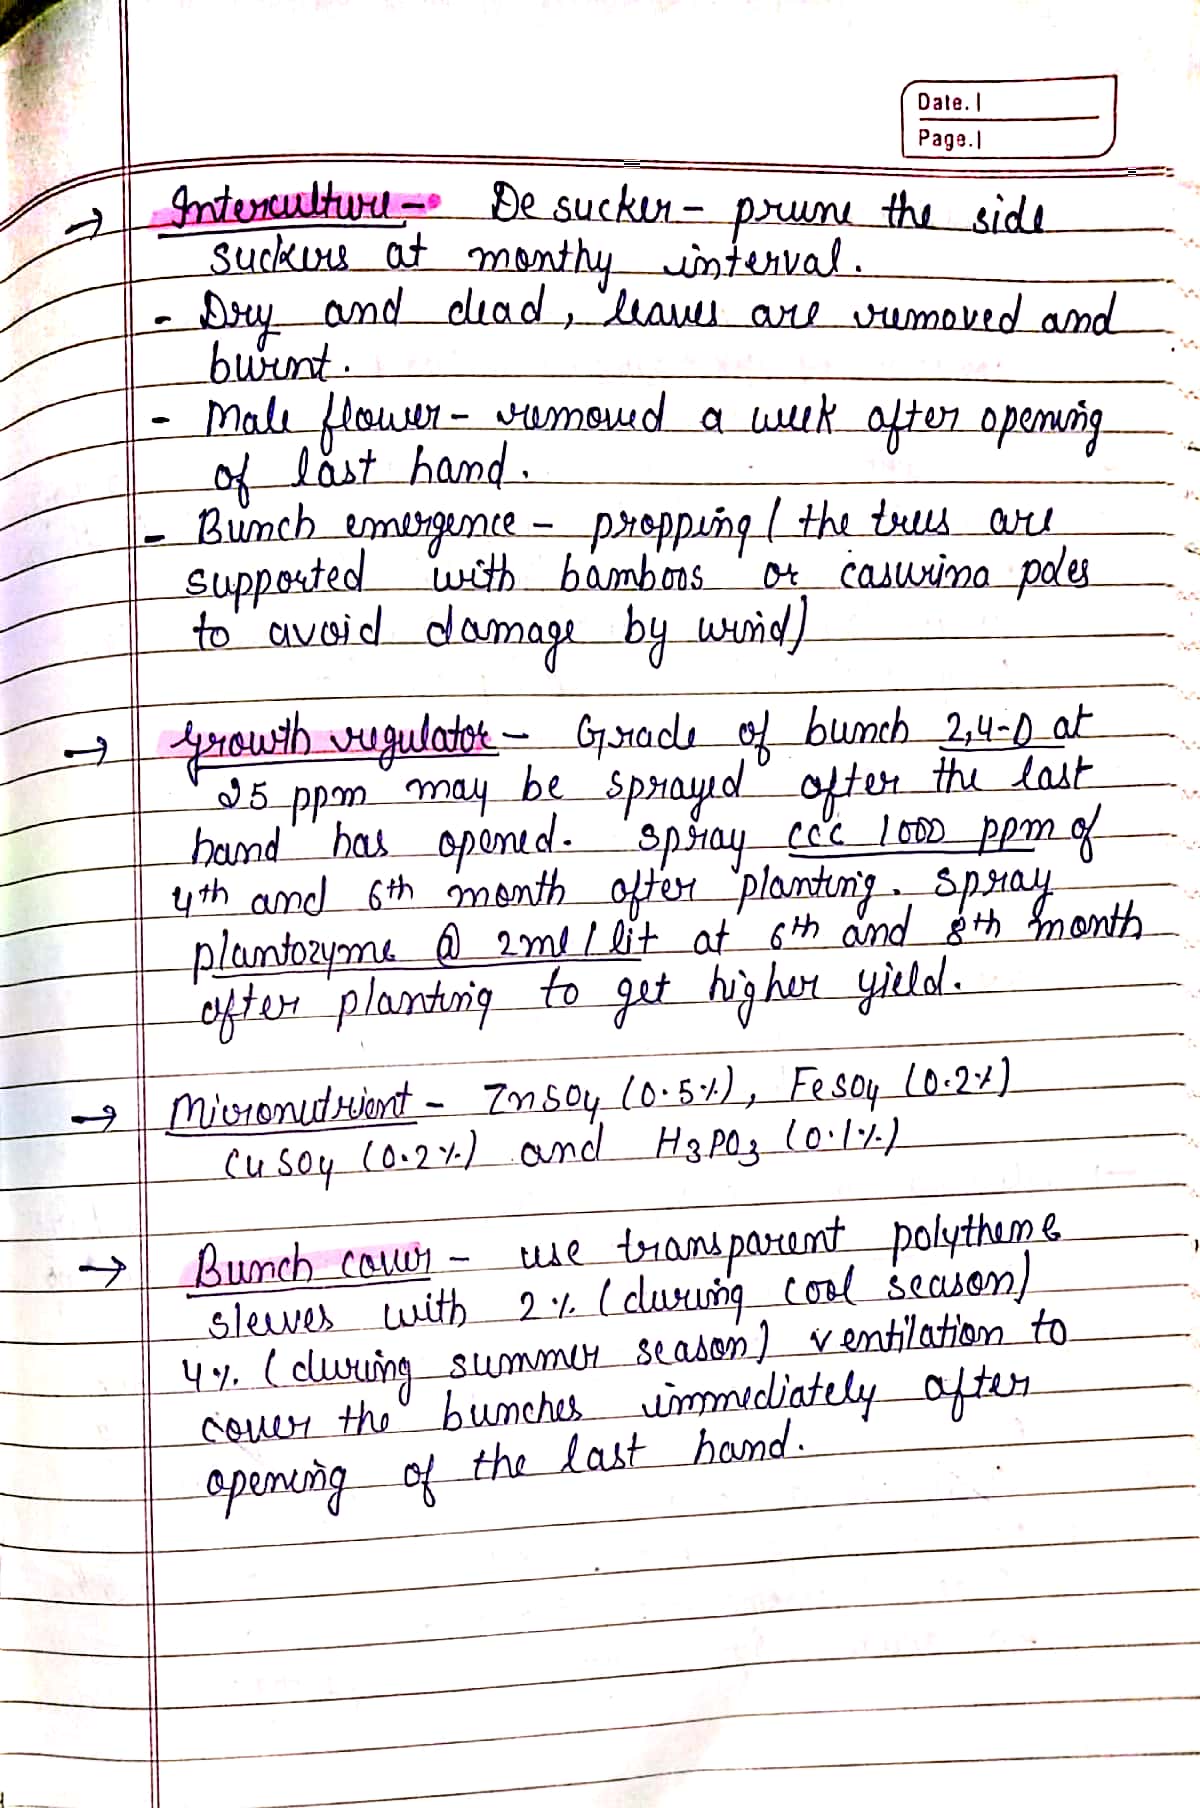 Date.
Page.
→ Interculture - De sucker - prune the side
suckers at monthy interval.
- Dry and dead, leaves are removed and
burnt.
- Male flower - removed a week after opening
of last hand.
- Bunch emergence - propping ( the trees are
supported with bamboos or casurina poles
to avoid damage by wind)
→ Growth regulator - Grade of bunch 2,4-D at
25 ppm may be sprayed after the last
hand has opened. Spray CCC 1000 ppm of
4th and 6th month after planting. Spray
plantozyme @ 2ml / lit at 6th and 8th month
after planting to get higher yield.
→ Micronutrient - ZnSO4 (0.5%), FeSO4 (0.2%)
CuSO4 (0.2%) and H3PO3 (0.1%)
→ Bunch cover - use transparent polythene
sleeves with 2% (during cool season)
4% (during summer season) ventilation to
cover the bunches immediately after
opening of the last hand.